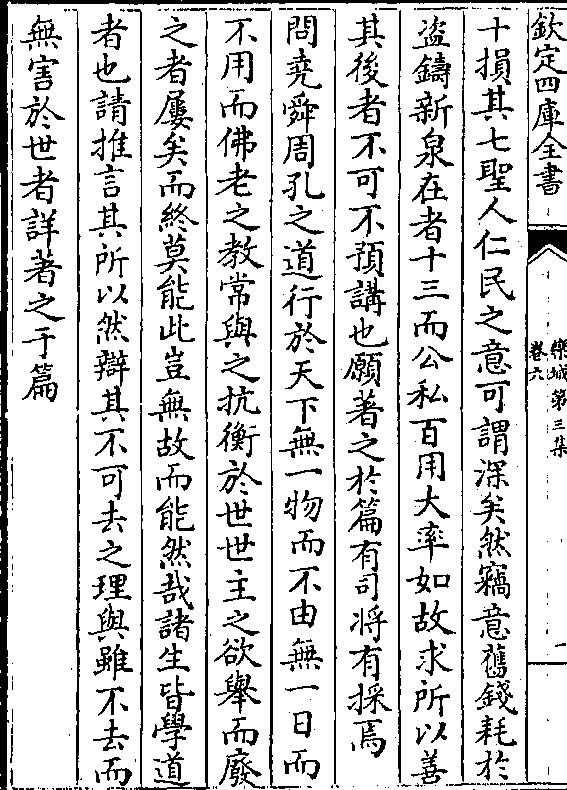 欽定四庫全書
欒城第三集
卷六
一
十損其七聖人仁民之意可謂深矣然竊意舊錢耗於
盗鑄新泉在者十三而公私百用大率如故求所以善
其後者不可不預講也願著之於篇有司將有採焉
問堯舜周孔之道行於天下無一物而不由無一日而
不用而佛老之教常與之抗衡於世世主之欲舉而廢
之者屢矣而終莫能此豈無故而能然哉諸生皆學道
者也請推言其所以然辯其不可去之理與雖不去而
無害於世者詳著之于篇